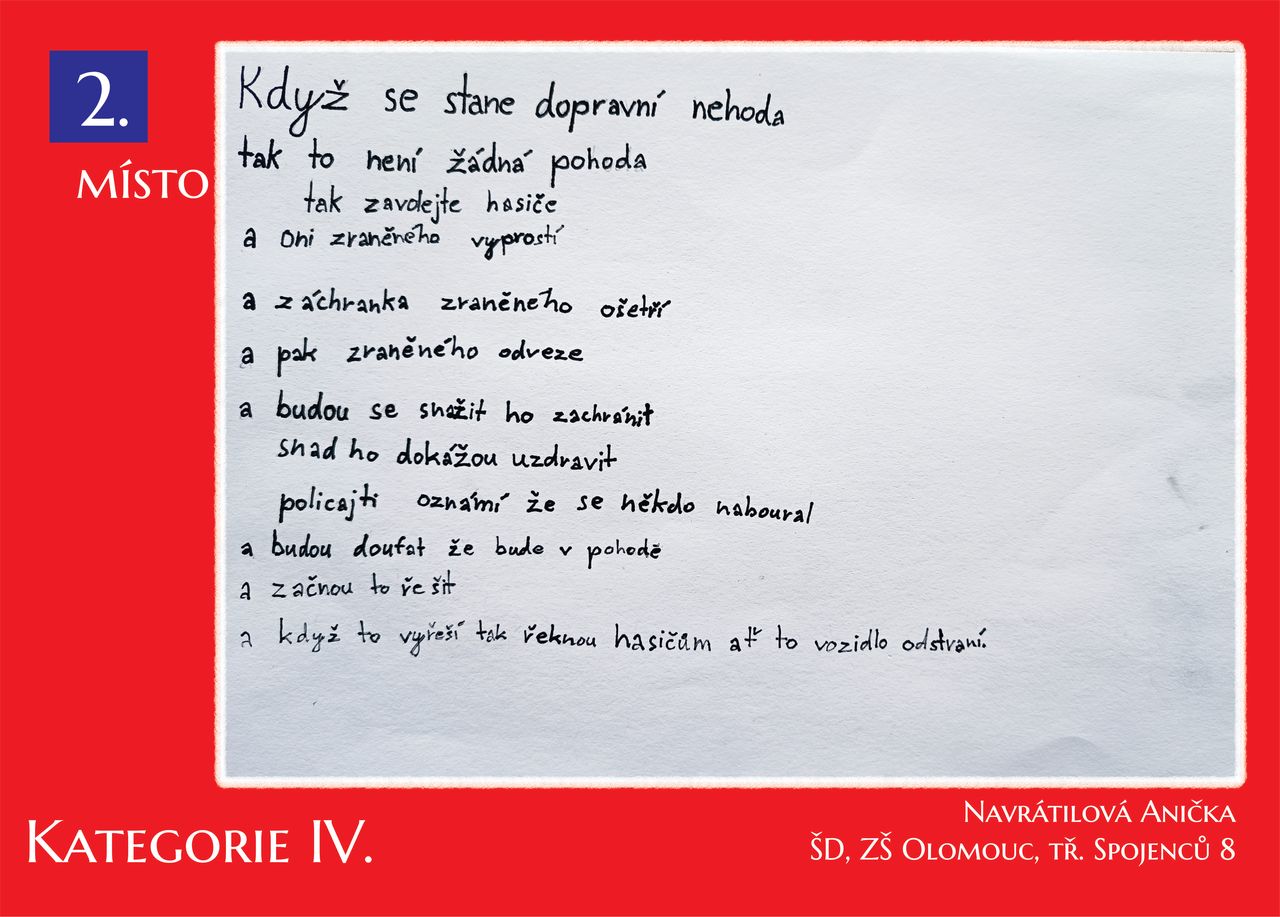 2.
MÍSTO
Když se stane dopravní nehoda
tak to není žádná pohoda
tak zavolejte hasiče
a oni zraněného vyprostí
a záchranka zraněného ošetří
a pak zraněného odveze
a budou se snažit ho zachránit
snad ho dokážou uzdravit
policajti oznámí že se někdo naboural
a budou doufat že bude v pohodě
a začnou to řešit
a když to vyřeší tak řeknou hasičům ať to vozidlo odstraní.
KATEGORIE IV.
NAVRÁTILOVÁ ANIČKA
ŠD, ZŠ OLOMOUC, TŘ. SPOJENCŮ 8